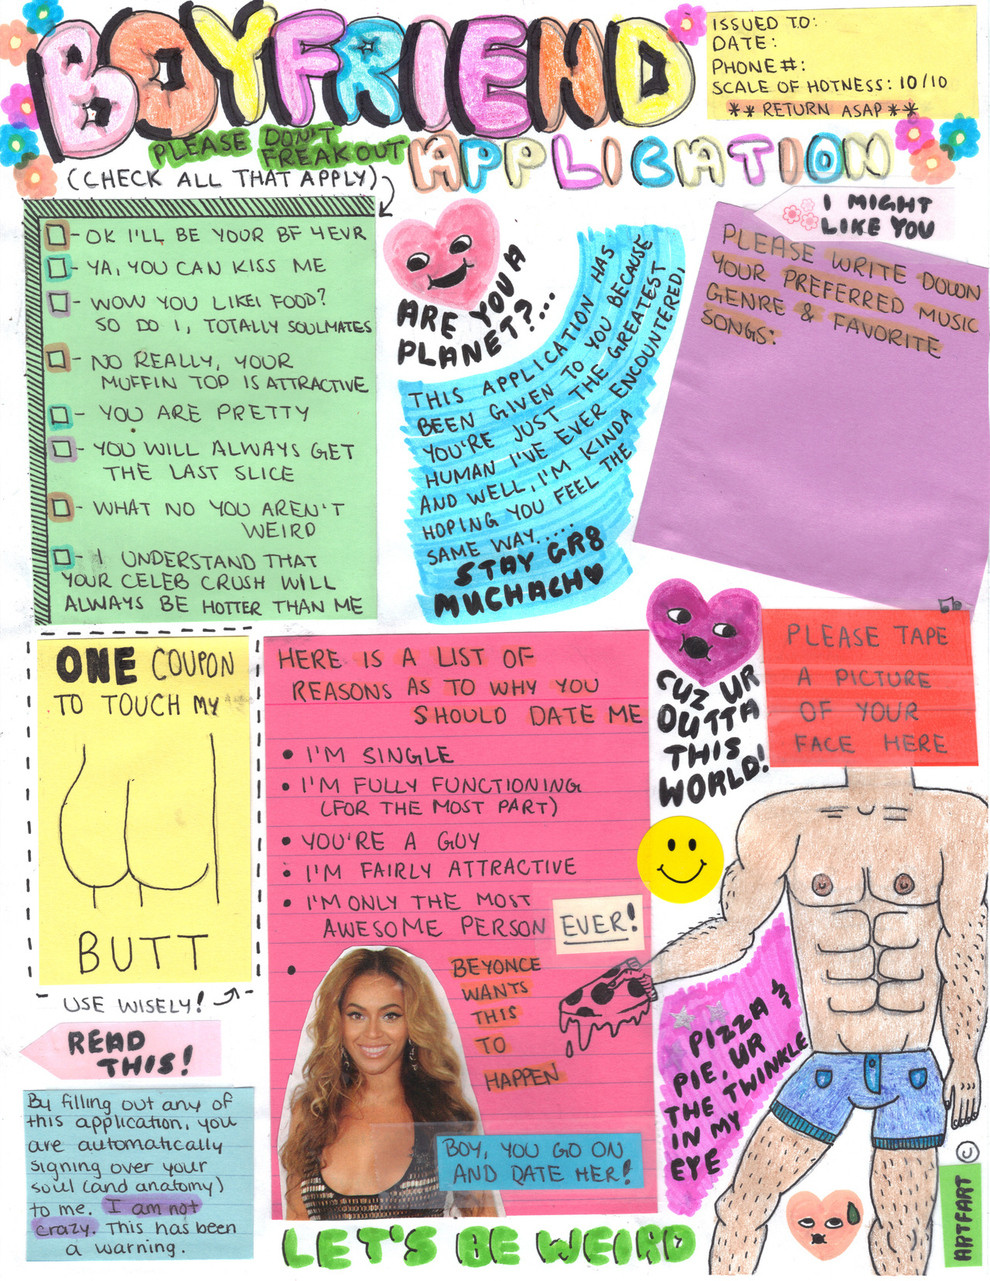 BOYFRIEND
PLEASE DON'T
FREAK OUT
APPLICATION
ISSUED TO:
DATE:
PHONE #:
SCALE OF HOTNESS: 10/10
** RETURN ASAP **
(CHECK ALL THAT APPLY)
- OK I'LL BE YOUR BF 4EVR
- YA, YOU CAN KISS ME
- WOW YOU LIKE FOOD?
SO DO I, TOTALLY SOULMATES
- NO REALLY, YOUR
MUFFIN TOP IS ATTRACTIVE
- YOU ARE PRETTY
- YOU WILL ALWAYS GET
THE LAST SLICE
- WHAT NO YOU AREN'T
WEIRD
- I UNDERSTAND THAT
YOUR CELEB CRUSH WILL
ALWAYS BE HOTTER THAN ME
ARE YOU A
PLANET?...
THIS APPLICATION HAS
BEEN GIVEN TO YOU BECAUSE
YOU'RE JUST THE GREATEST
HUMAN I'VE EVER ENCOUNTERED,
AND WELL, I'M KINDA
HOPING YOU FEEL THE
SAME WAY.....
STAY GR8
MUCHACHO
I MIGHT
LIKE YOU
PLEASE WRITE DOWN
YOUR PREFERRED MUSIC
GENRE & FAVORITE
SONGS:
CUZ UR
OUTTA
THIS
WORLD!
PLEASE TAPE
A PICTURE
OF YOUR
FACE HERE
ONE COUPON
TO TOUCH MY
BUTT
USE WISELY!
READ
THIS!
By filling out any of
this application, you
are automatically
signing over your
soul (and anatomy)
to me. I am not
crazy. This has been
a warning.
HERE IS A LIST OF
REASONS AS TO WHY YOU
SHOULD DATE ME
• I'M SINGLE
• I'M FULLY FUNCTIONING
(FOR THE MOST PART)
• YOU'RE A GUY
• I'M FAIRLY ATTRACTIVE
• I'M ONLY THE MOST
AWESOME PERSON EVER!
• BEYONCE
WANTS
THIS
TO
HAPPEN
BOY, YOU GO ON
AND DATE HER!
PIZZA &
PIE, UR
THE TWINKLE
IN MY
EYE
LET'S BE WEIRD
© ARTFART